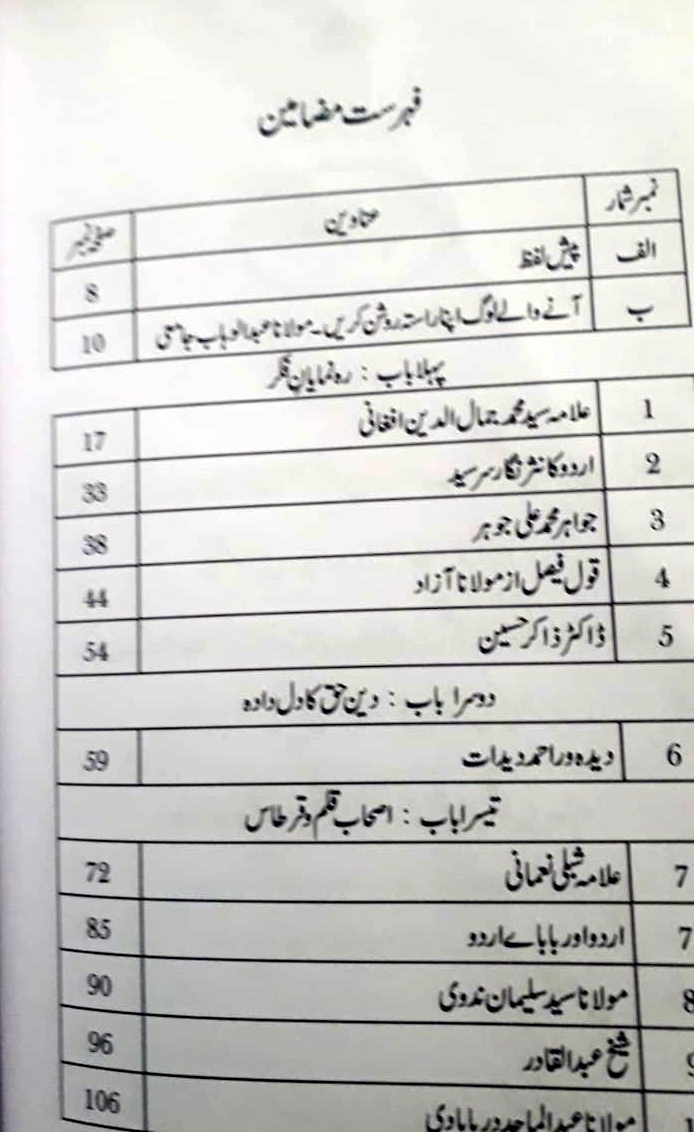 فہرست مضامین
نمبر شمار عناوین صفحہ نمبر
الف پیش لفظ 8
ب آنے والے لوگ اپنا راستہ روشن کریں۔ مولانا عبدالوہاب جامعی 10
پہلا باب : رہ نمایانِ فکر
1 علامہ سید محمد جمال الدین افغانی 17
2 اردو کا نثر نگار سرسید 33
3 جواہر محمد علی جوہر 38
4 قول فیصل از مولانا آزاد 44
5 ڈاکٹر ذاکر حسین 54
دوسرا باب : دین حق کا دل دادہ
6 دیدہ ور احمد دیدات 59
تیسرا باب : اصحاب قلم و قرطاس
7 علامہ شبلی نعمانی 72
7 اردو اور بابائے اردو 85
8 مولانا سید سلیمان ندوی 90
9 شیخ عبدالقادر 96
مولانا عبدالماجد دریابادی 106